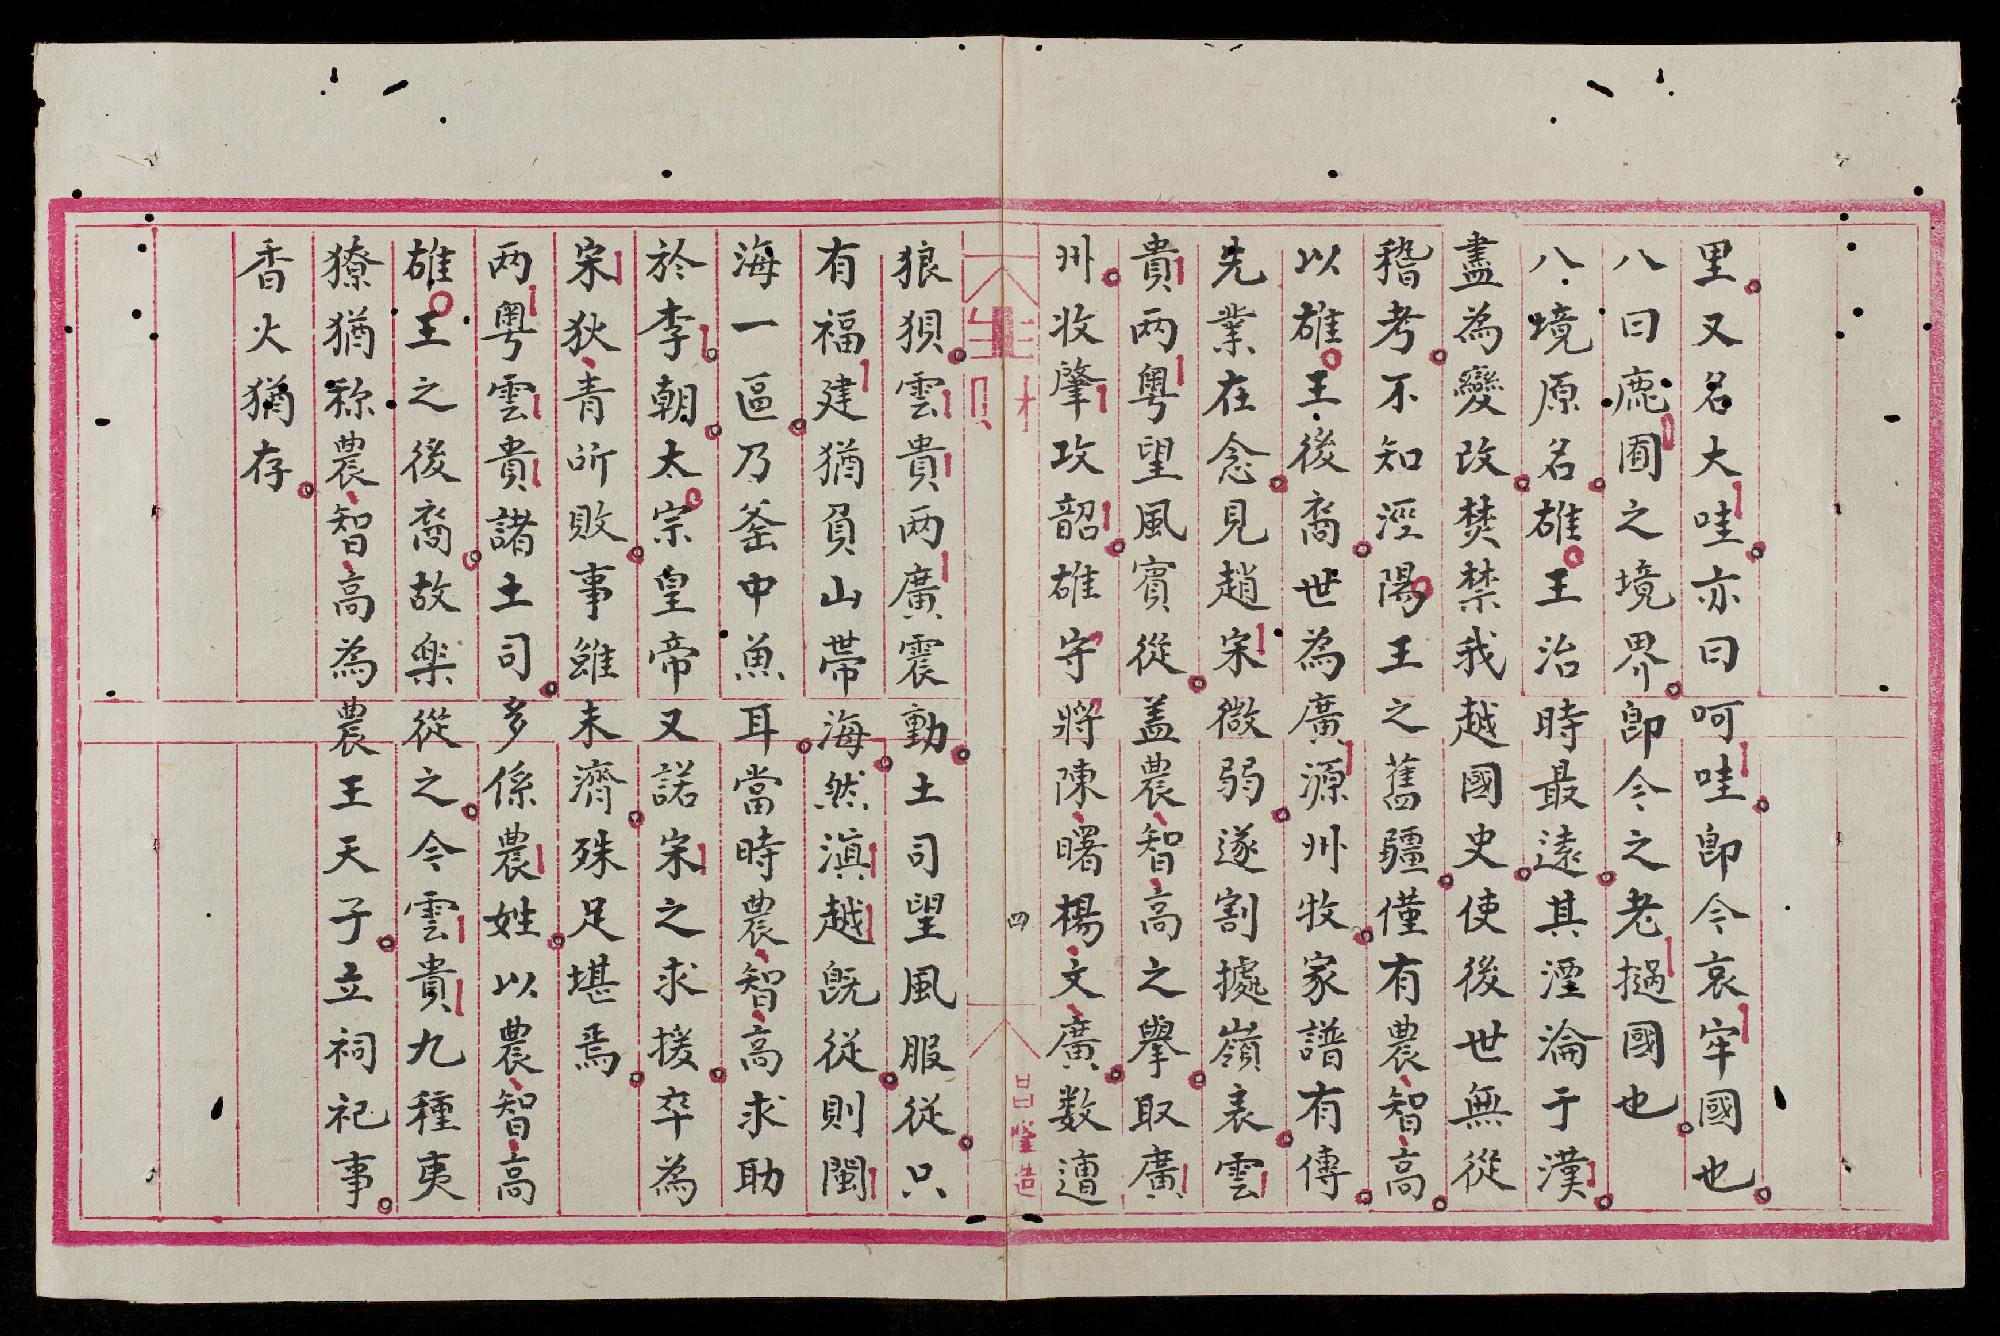 里又名大哇亦曰呵哇即今哀牢國也
八曰鹿囿之境界即今之老撾國也
八境原名雄王治時最遠其湮淪于漢
盡為變改焚禁我越國史使後世無從
稽考不知涇陽王之舊疆僅有農智高
以雄王後裔世為廣源州牧家譜有傳
先業在念見趙宋微弱遂割據嶺表雲
貴两粵望風賓從盖農智高之舉取廣
州收肇攻韶雄守將陳曙楊文廣数遭
四
昌肇造
狼狽雲貴两廣震動土司望風服從只
有福建猶負山帶海然滇越既從則閩
海一區乃釜中魚耳當時農智高求助
於李朝太宗皇帝又諾宋之求援卒為
宋狄青所敗事雖未濟殊足堪焉
两粵雲貴諸土司多係農姓以農智高
雄王之後裔故樂從之今雲貴九種夷
獠猶称農智高為農王天子立祠祀事
香火猶存